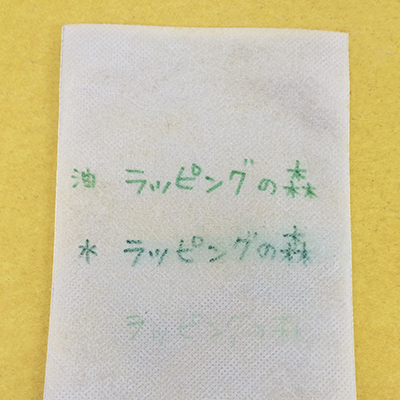 油 ラッピングの森
水 ラッピングの森
ラッピングの森